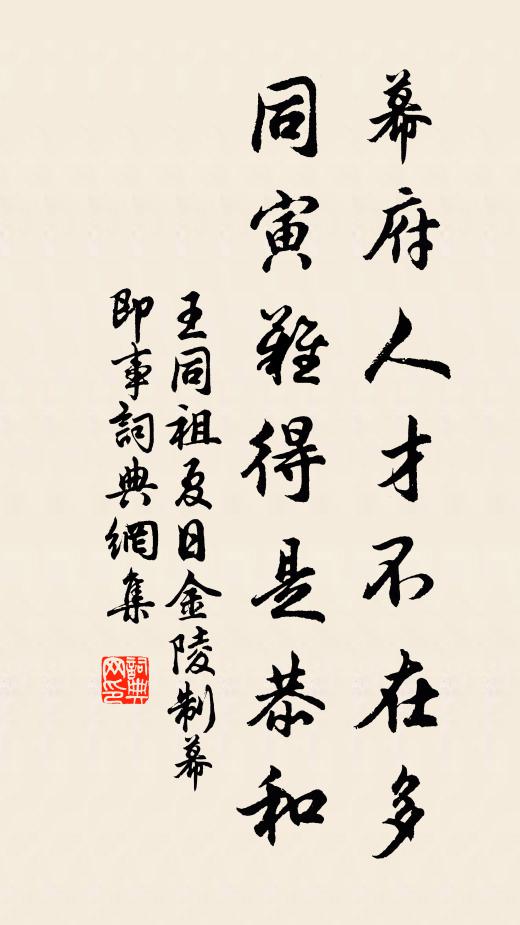 幕府人才不在多
同寅難得是恭和
王同祖夏日金陵制幕
即事詞典網集
詞典
网印